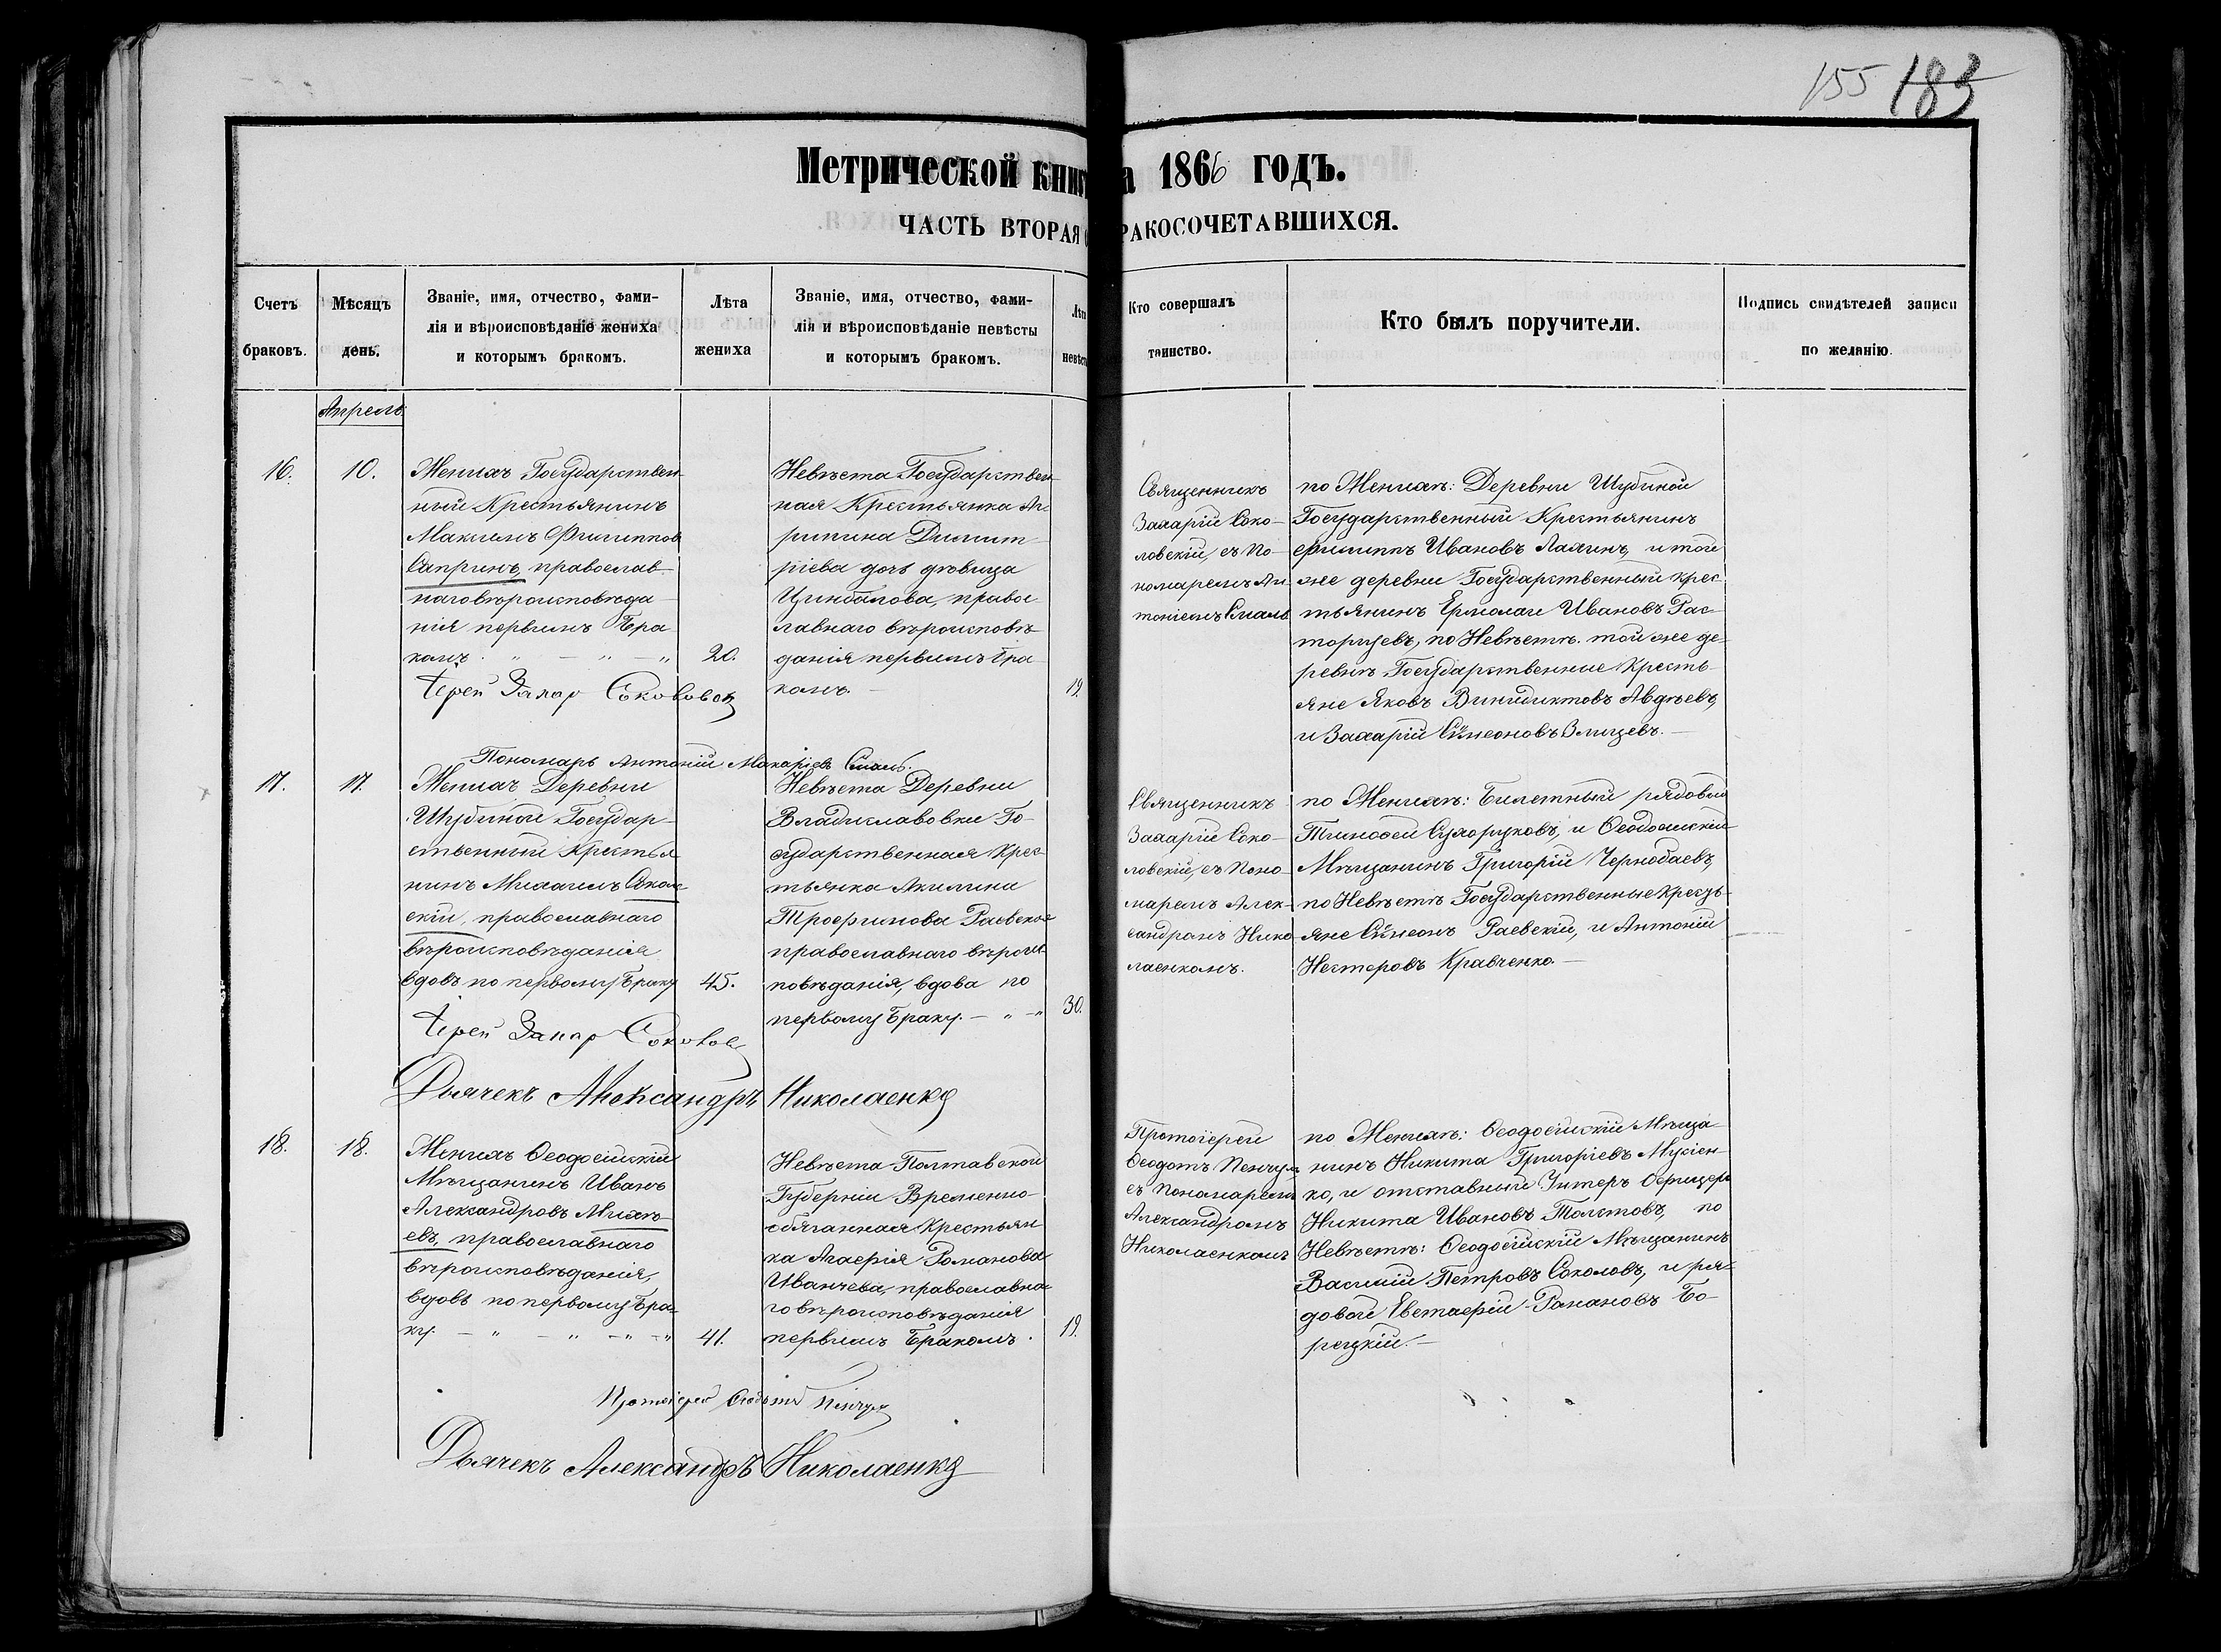 155 183
Метрической книг а 1866 годъ.
ЧАСТЬ ВТОРАЯ РАКОСОЧЕТАВШИХСЯ.
Счетъ
браковъ.
Мѣсяцъ
день.
Званіе, имя, отчество, фами-
лія и вѣроисповѣданіе жениха
и которымъ бракомъ.
Лѣта
жениха
Званіе, имя, отчество, фами-
лія и вѣроисповѣданіе невѣсты
и которымъ бракомъ.
Лѣта
невѣс
Кто совершалъ
таинство.
Кто былъ поручители.
Подпись свидѣтелей записи
по желанію.
Апрель
16.
10.
Женихъ Государствен-
ный Крестьянинъ
Максимъ Филиппов
Сапринъ, православ-
наго вѣроисповѣда-
нія первымъ Бра-
комъ.
20.
Невѣста Государствен-
ная Крестьянка Аг-
рипина Димит-
ріева дочь дѣвица
Цимбалова, правос-
лавнаго вѣроисповѣ-
данія первымъ Бра-
комъ.
19.
Священникъ
Захарій Соко-
ловскій, съ По-
номаремъ Ан-
тоніемъ Смаль
по Женихѣ: Деревни Шубиной
Государственный Крестьянинъ
Филиппъ Ивановъ Лахинъ, и той
же деревни Государственный крес-
тьянинъ Ермолай Ивановъ Рас-
торцевъ, по Невѣстѣ: той же де-
ревни Государственные Кресть-
яне Яковъ Винидиктовъ Авдѣевъ,
и Захарій Сѵмеоновъ Злицевъ.
Іерей Захар Соколовск
Пономарь Антоній Макаріевъ Смаль.
17.
17.
Женихъ Деревни
Шубиной Государ-
ственный Крестья-
нинъ Михаилъ Сокол-
скій, православнаго
вѣроисповѣданія
вдовъ по первому Браку
45.
Невѣста Деревни
Владиславовки Го-
сударственная Крес-
тьянка Акилина
Трофимова Раевская
православнаго вѣроис-
повѣданія, вдова по
первому Браку.
30.
Священникъ
Захарій Соко-
ловскій, съ Поно-
маремъ Алек-
сандромъ Нико-
лаенкомъ.
по Женихѣ: Билетный рядовый
Тимофей Сухоруковъ, и Ѳеодосійскій
Мѣщанинъ Григорій Чернобаевъ,
по Невѣстѣ Государственные Кресть-
яне Сѵмеонъ Раевскій, и Антоній
Нестеровъ Кравченко.
Іерей Захар Соколов
Дьячекъ Александръ Николаенко
18.
18.
Женихъ Ѳеодосійскій
Мѣщанинъ Иванъ
Александровъ Михѣ-
евъ, православнаго
вѣроисповѣданія,
вдовъ по первому Бра-
ку.
41.
Невѣста Полтавской
Губерніи Временно-
обязанная Крестьян-
ка Агафія Романова
Иванчева, православна-
го вѣроисповѣданія
первымъ Бракомъ.
19.
Протоіерей
Ѳеодотъ Пенчул
съ Пономаремъ
Александромъ
Николаенкомъ
по Женихѣ: Ѳеодосійскій Мѣща-
нинъ Никита Григоріевъ Мусіен-
ко, и отставный Унтеръ Офицеръ
Никита Ивановъ Толстовъ, по
Невѣстѣ: Ѳеодосійскій Мѣщанинъ
Василій Петровъ Соколовъ, и ря-
довой Евстафій Романовъ Бо-
рецкій.
Протоіерей Ѳеодотъ Пенчул
Дьячекъ Александръ Николаенко